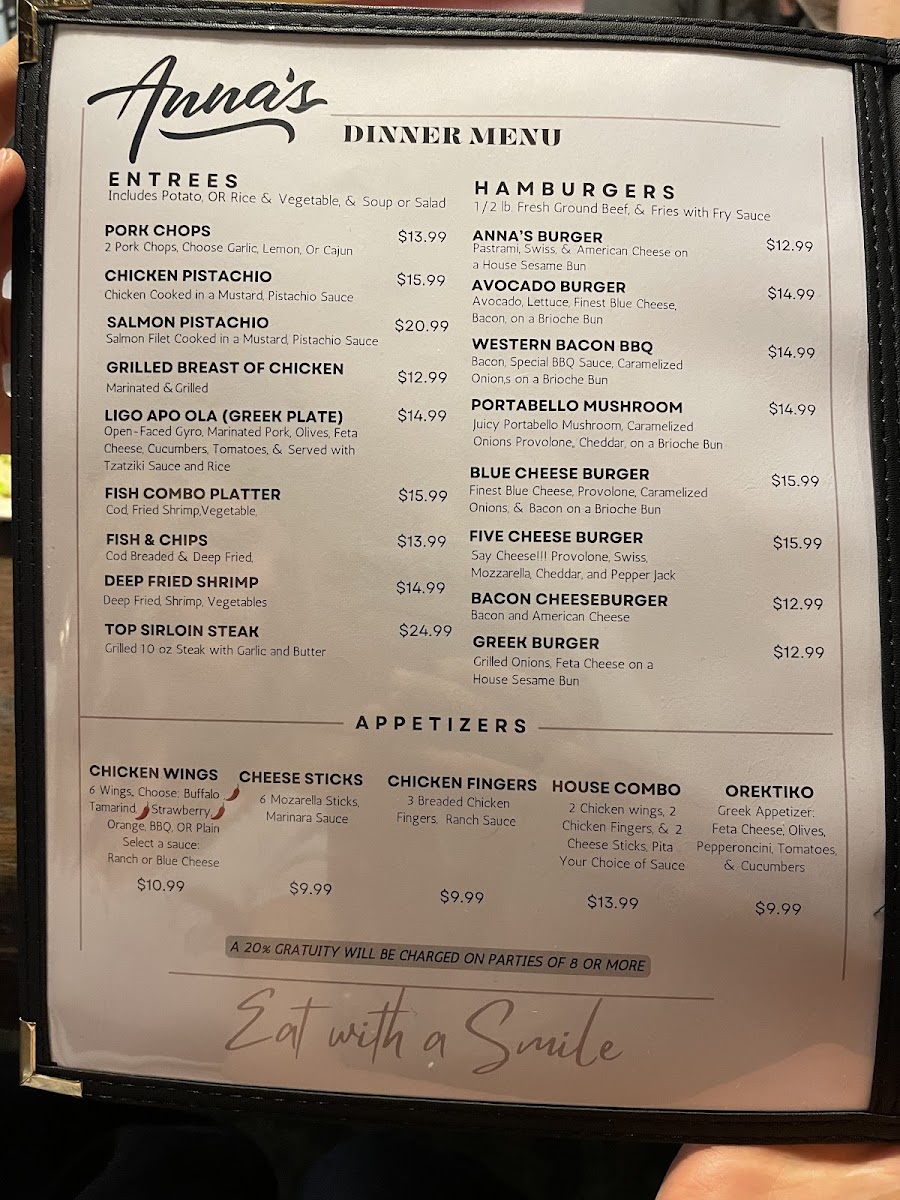 Anna's
DINNER MENU
ENTREES
Includes Potato, OR Rice & Vegetable, & Soup or Salad
PORK CHOPS $13.99
2 Pork Chops, Choose Garlic, Lemon, Or Cajun
CHICKEN PISTACHIO $15.99
Chicken Cooked in a Mustard, Pistachio Sauce
SALMON PISTACHIO $20.99
Salmon Filet Cooked in a Mustard, Pistachio Sauce
GRILLED BREAST OF CHICKEN $12.99
Marinated & Grilled
LIGO APO OLA (GREEK PLATE) $14.99
Open-Faced Gyro, Marinated Pork, Olives, Feta
Cheese, Cucumbers, Tomatoes, & Served with
Tzatziki Sauce and Rice
FISH COMBO PLATTER $15.99
Cod, Fried Shrimp,Vegetable,
FISH & CHIPS $13.99
Cod Breaded & Deep Fried,
DEEP FRIED SHRIMP $14.99
Deep Fried, Shrimp, Vegetables
TOP SIRLOIN STEAK $24.99
Grilled 10 oz Steak with Garlic and Butter
HAMBURGERS
1/2 lb. Fresh Ground Beef, & Fries with Fry Sauce
ANNA'S BURGER $12.99
Pastrami, Swiss, & American Cheese on
a House Sesame Bun
AVOCADO BURGER $14.99
Avocado, Lettuce, Finest Blue Cheese,
Bacon, on a Brioche Bun
WESTERN BACON BBQ $14.99
Bacon, Special BBQ Sauce, Caramelized
Onion,s on a Brioche Bun
PORTABELLO MUSHROOM $14.99
Juicy Portabello Mushroom, Caramelized
Onions Provolone,, Cheddar, on a Brioche Bun
BLUE CHEESE BURGER $15.99
Finest Blue Cheese, Provolone, Caramelized
Onions, & Bacon on a Brioche Bun
FIVE CHEESE BURGER $15.99
Say Cheese!!! Provolone, Swiss,
Mozzarella, Cheddar, and Pepper Jack
BACON CHEESEBURGER $12.99
Bacon and American Cheese
GREEK BURGER $12.99
Grilled Onions, Feta Cheese on a
House Sesame Bun
APPETIZERS
CHICKEN WINGS
6 Wings, Choose: Buffalo
Tamarind, Strawberry,
Orange, BBQ, OR Plain
Select a sauce:
Ranch or Blue Cheese
$10.99
CHEESE STICKS
6 Mozarella Sticks,
Marinara Sauce
$9.99
CHICKEN FINGERS
3 Breaded Chicken
Fingers, Ranch Sauce
$9.99
HOUSE COMBO
2 Chicken wings, 2
Chicken Fingers, & 2
Cheese Sticks, Pita
Your Choice of Sauce
$13.99
OREKTIKO
Greek Appetizer:
Feta Cheese, Olives,
Pepperoncini, Tomatoes,
& Cucumbers
$9.99
A 20% GRATUITY WILL BE CHARGED ON PARTIES OF 8 OR MORE
Eat with a Smile